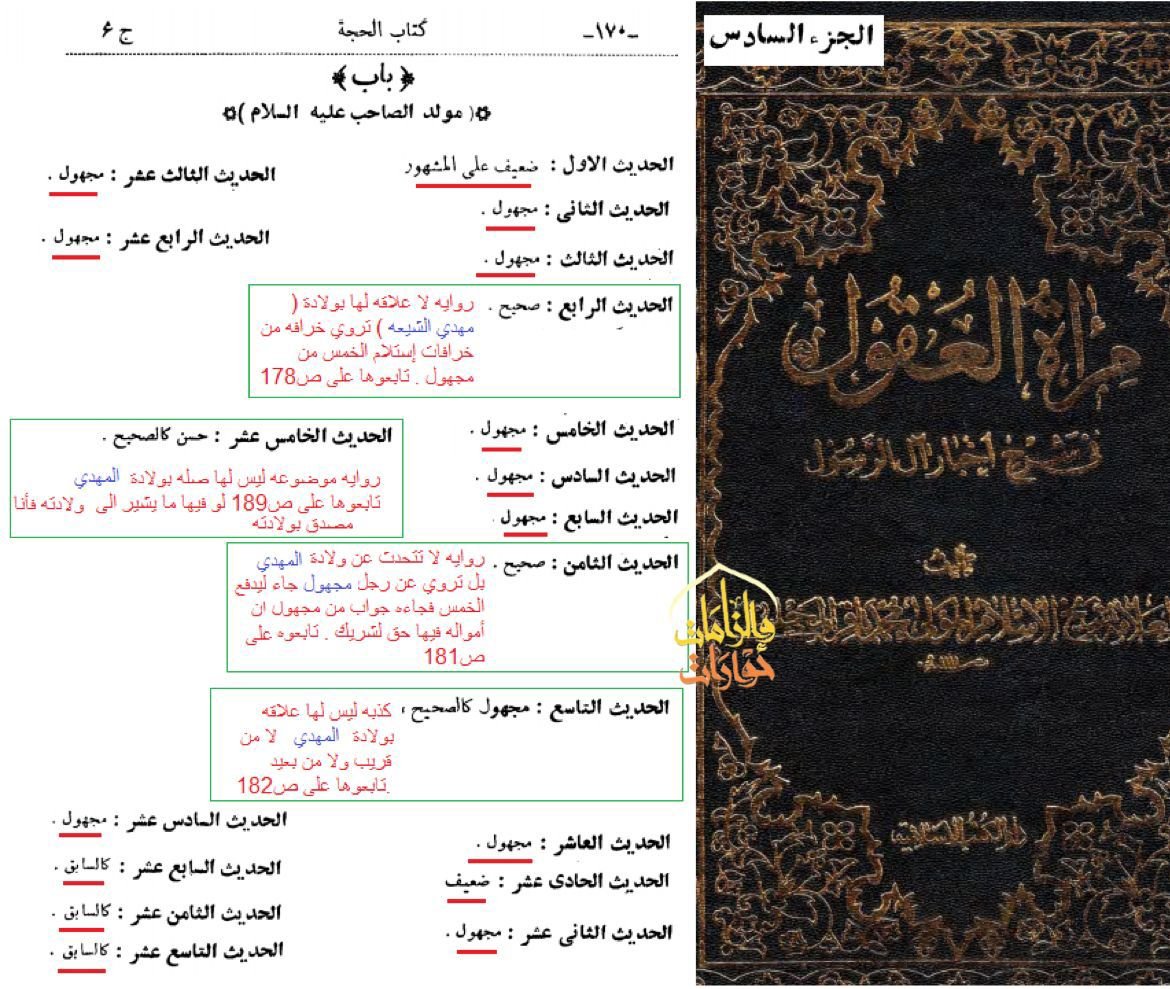 ج ٦
كتاب الحجة
-١٧٠-
﴿ باب ﴾
✿( مولد الصاحب عليه السلام )✿
الحديث الاول : ضعيف على المشهور
الحديث الثانى : مجهول .
الحديث الثالث : مجهول .
الحديث الرابع : صحيح .
روايه لا علاقه لها بولادة (
مهدي الشيعه ) تروي خرافه من
خرافات إستلام الخمس من
مجهول . تابعوها على ص178
الحديث الخامس : مجهول .
الحديث السادس : مجهول .
الحديث السابع : مجهول .
الحديث الثامن : صحيح .
روايه لا تتحدث عن ولادة المهدي
بل تروي عن رجل مجهول جاء ليدفع
الخمس فجاءه جواب من مجهول ان
أمواله فيها حق لشريك . تابعوه على
ص181
الحديث التاسع : مجهول كالصحيح ،
كذبه ليس لها علاقه
بولادة المهدي لا من
قريب ولا من بعيد
.تابعوها على ص182
الحديث العاشر : مجهول .
الحديث الحادى عشر : ضعيف
الحديث الثانى عشر : مجهول .
الحديث الثالث عشر : مجهول .
الحديث الرابع عشر : مجهول .
الحديث الخامس عشر : حسن كالصحيح .
روايه موضوعه ليس لها صله بولادة المهدي
تابعوها على ص189 لو فيها ما يشير الى ولادته فأنا
مصدق بولادته
الحديث السادس عشر : مجهول .
الحديث السابع عشر : كالسابق .
الحديث الثامن عشر : كالسابق .
الحديث التاسع عشر : كالسابق .
الجزء السادس
مرآة العقول
فى شرح أخبار آل الرسول
تأليف
دار الكتب الاسلامية